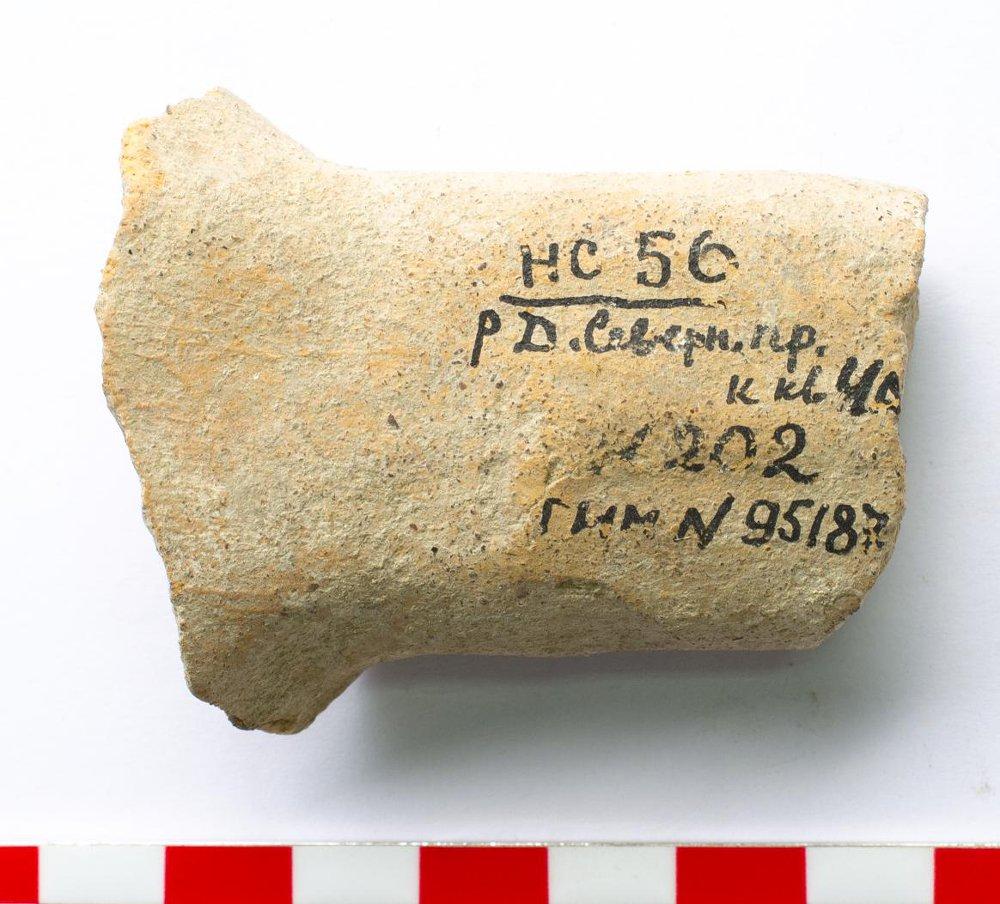 НС 56
Р Д. Северн. пр.
к кв. ЧΔ
№ 202
ГИМ № 95187